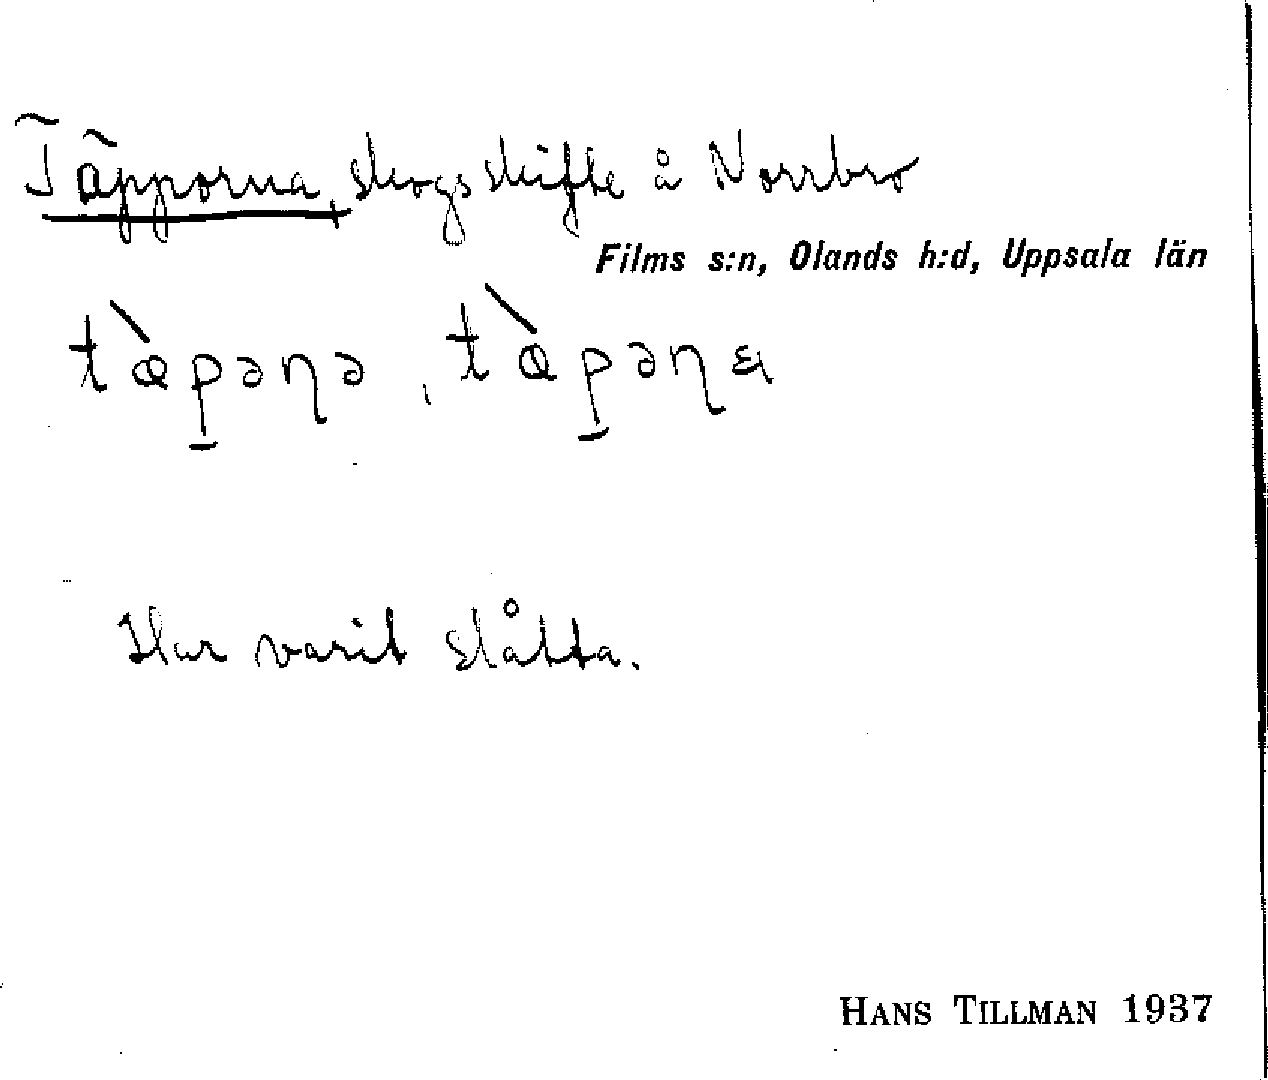 Täpporna, skogsskifte å Norrbro
Films s:n, Olands h:d, Uppsala län
tæ̀p̲əɳə, tæ̀p̲əɳa
Har varit slåtta.
HANS TILLMAN 1937